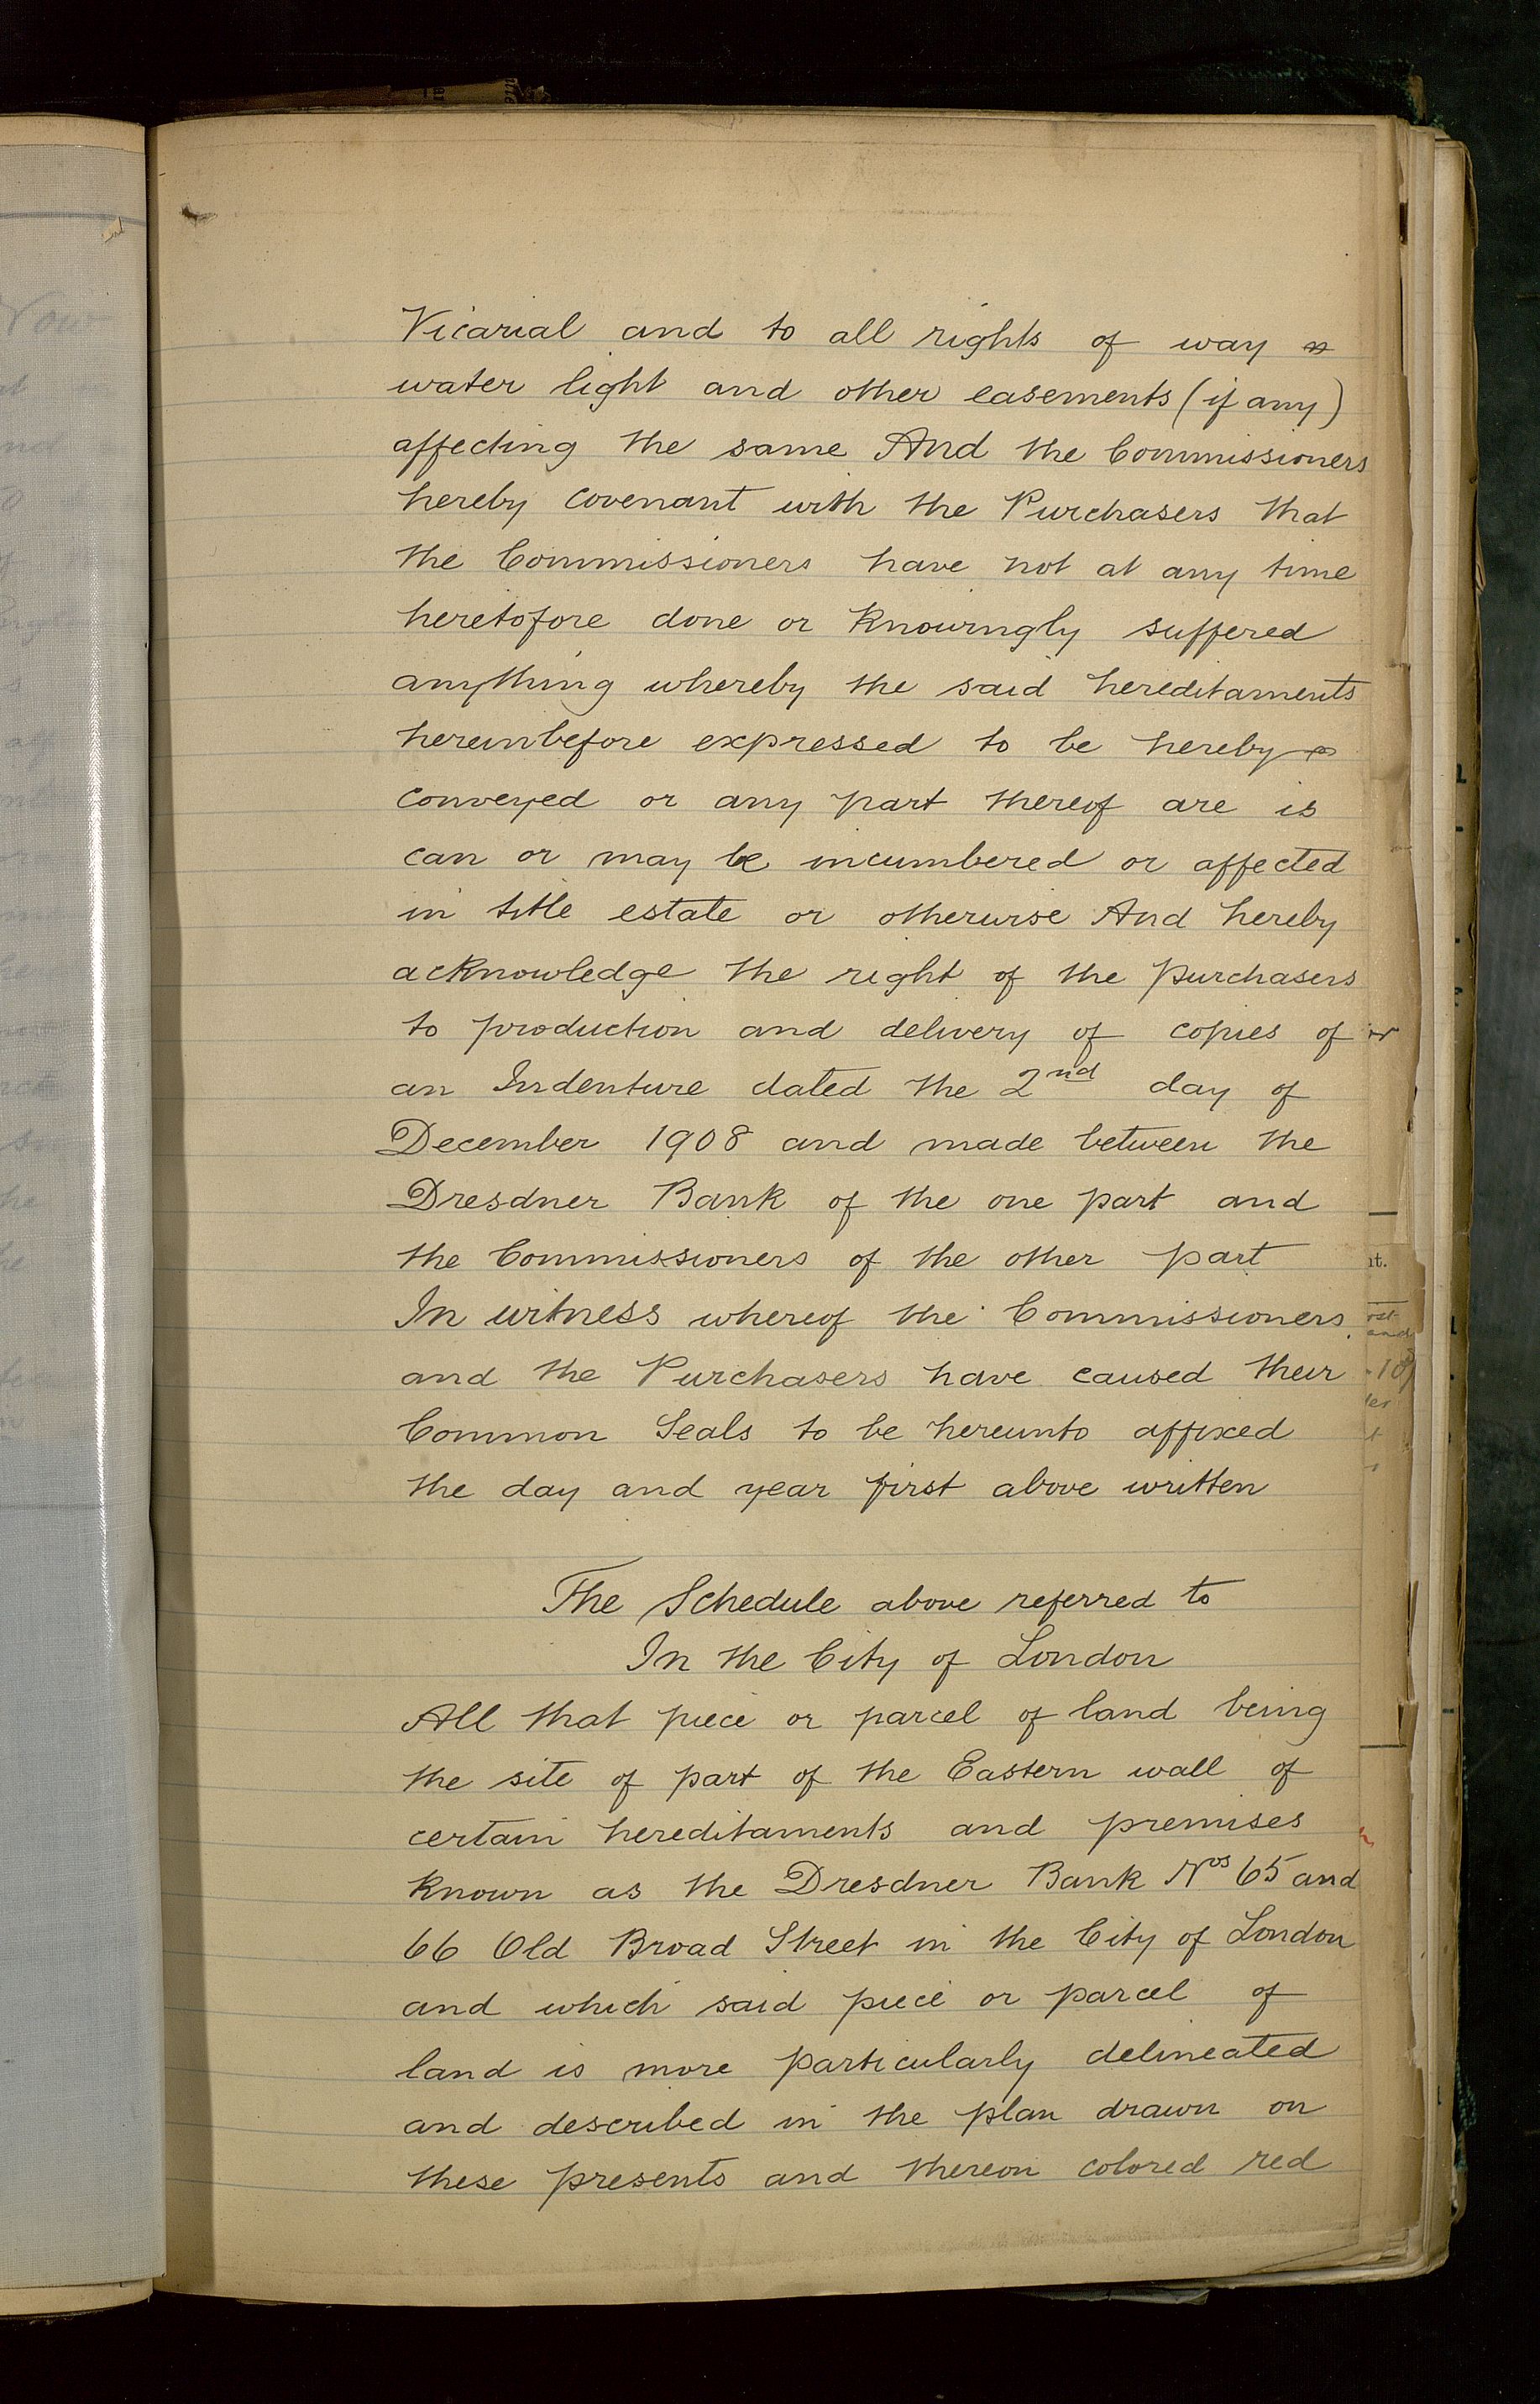 Vicarial and to all rights of way
water light and other easements (if any)
affecting the same And the Commissioners
hereby covenant with the Purchasers that
the Commissioners have not at any time
heretofore done or knowingly suffered
anything whereby the said hereditaments
hereinbefore expressed to be hereby
conveyed or any part thereof are is
can or may be incumbered or affected
in title estate or otherwise And hereby
acknowledge the right of the purchasers
to production and delivery of copies of
an Indenture dated the 2nd day of
December 1908 and made between the
Dresdner Bank of the one part and
the Commissioners of the other part
In witness whereof the Commissioners
and the Purchasers have caused their
Common Seals to be hereunto affixed
the day and year first above written
The Schedule above referred to
In the City of London
All that piece or parcel of land being
the site of part of the Eastern wall of
certain hereditaments and premises
known as the Dresdner Bank Nos 65 and
66 Old Broad Street in the City of London
and which said piece or parcel of
land is more particularly delineated
and described in the plan drawn on
these presents and thereon colored red